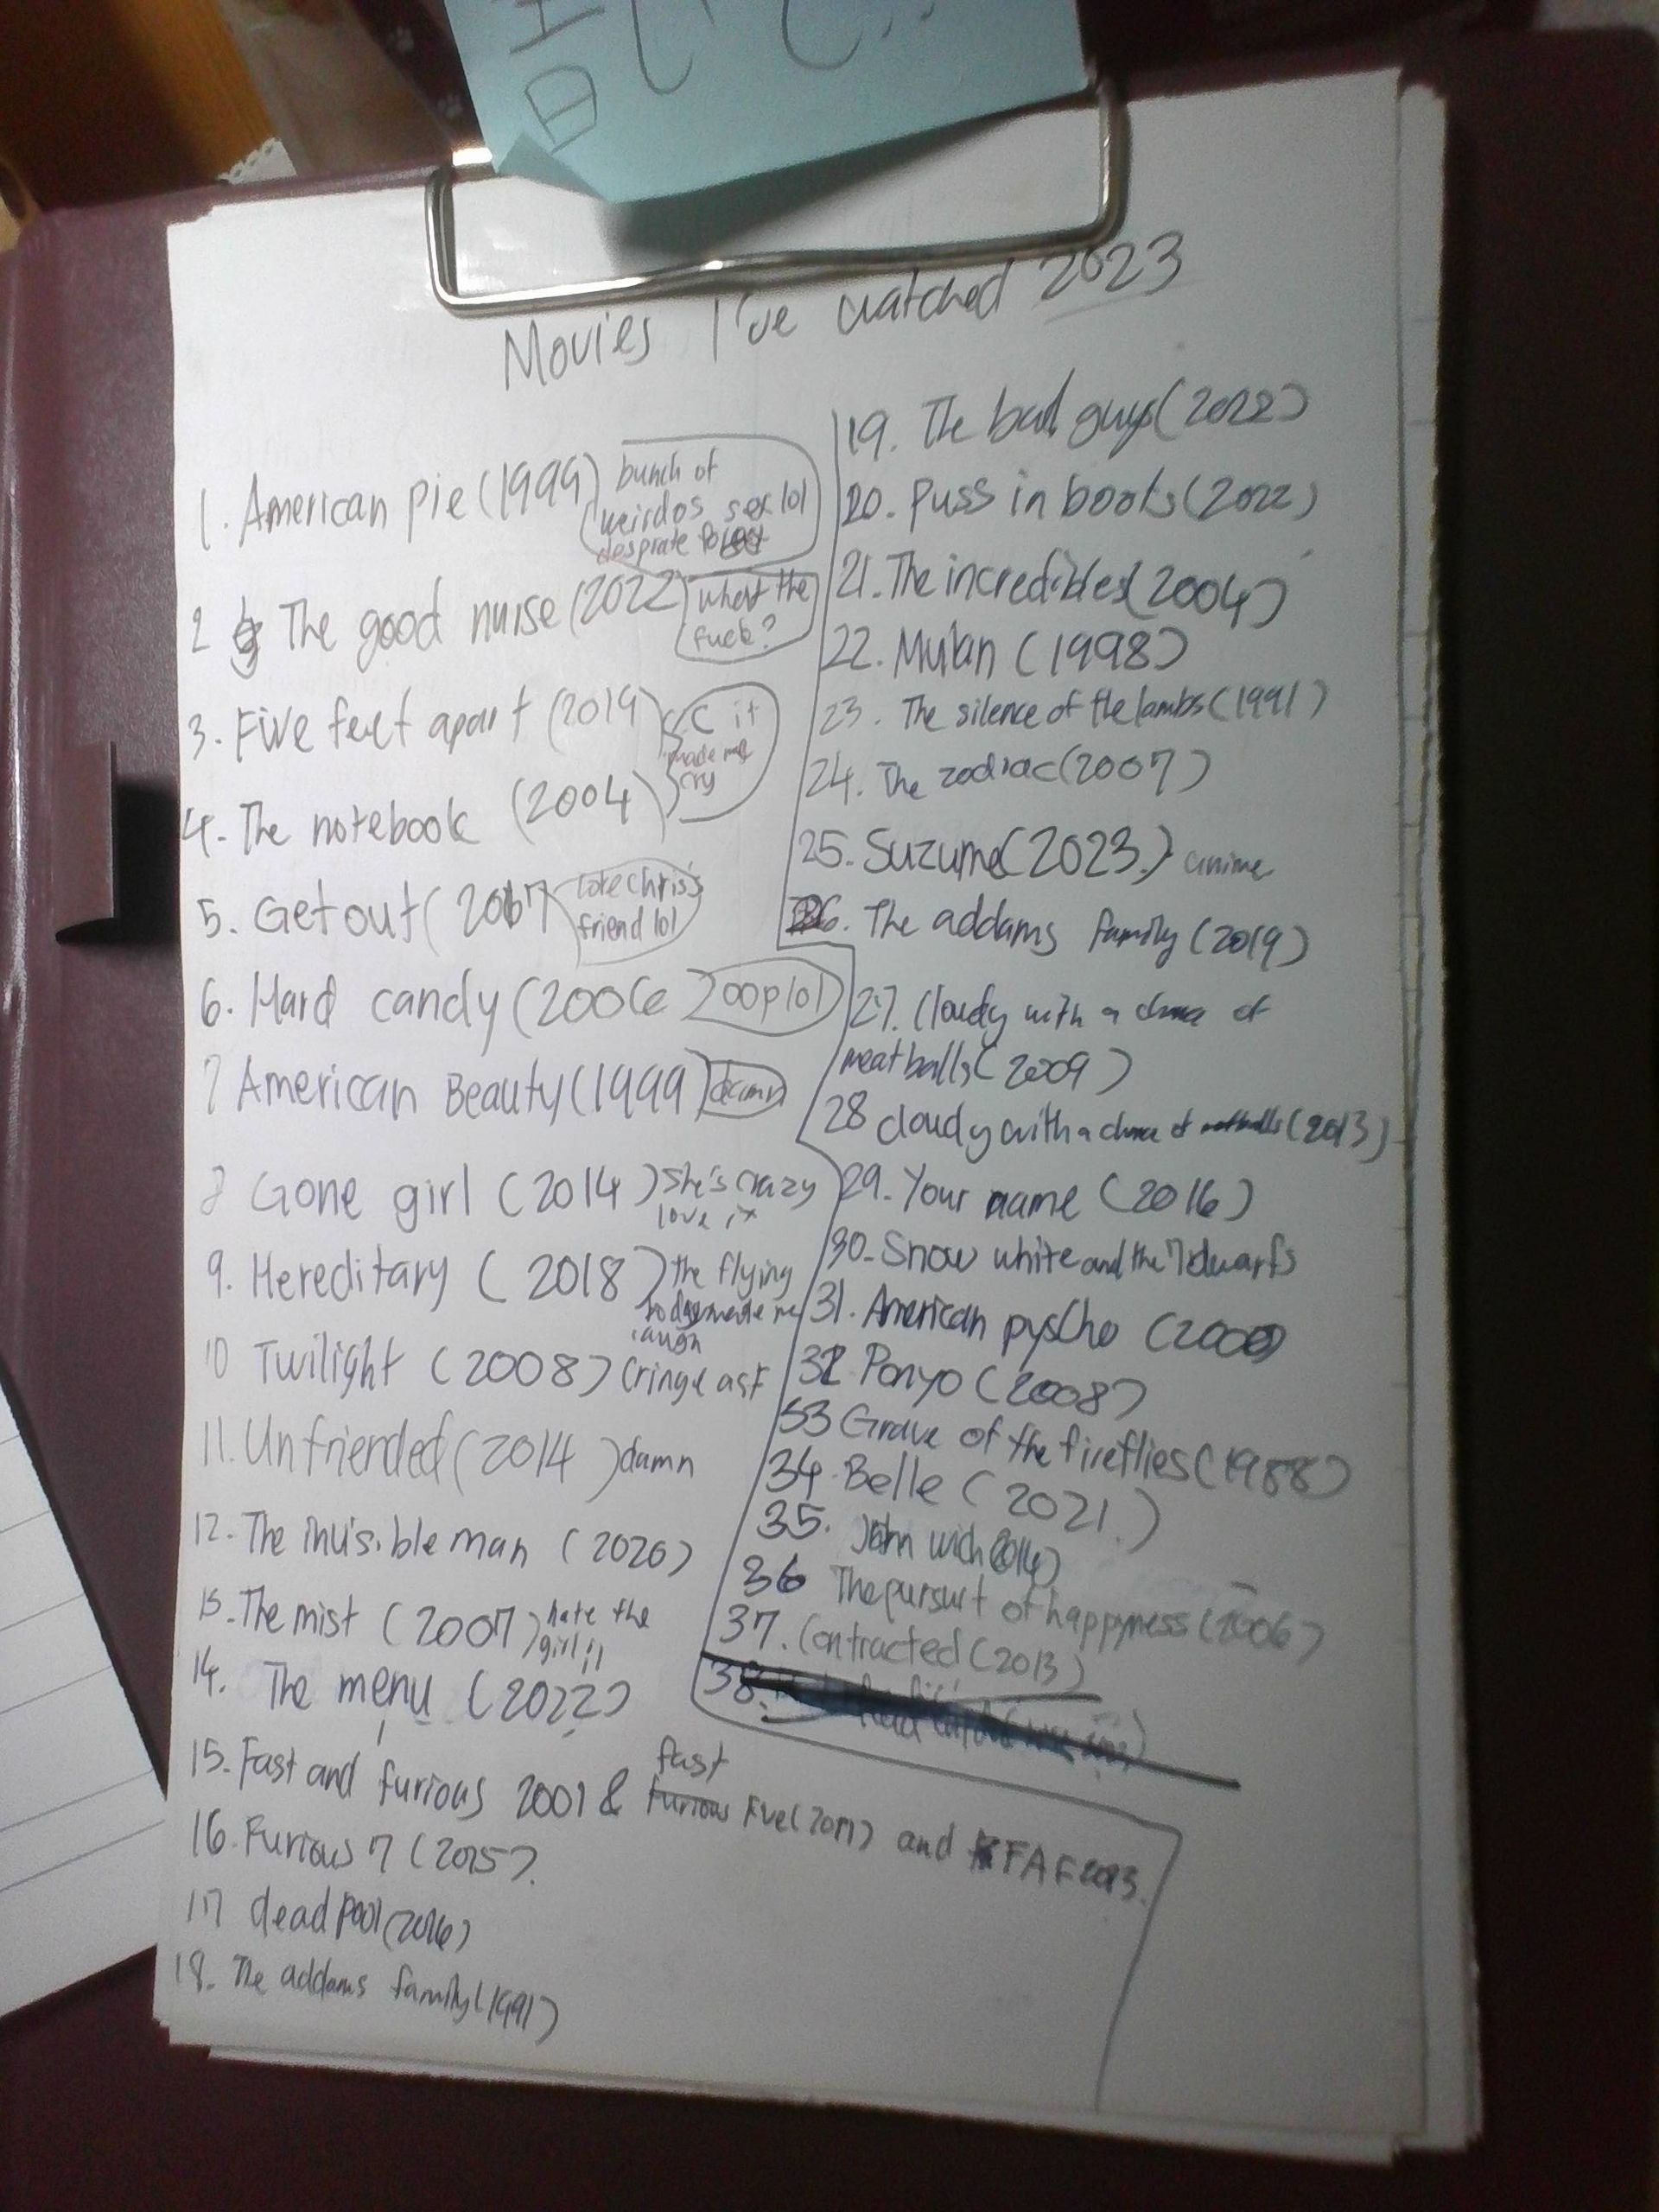 Movies I've watched 2023
1. American pie (1999) bunch of
weirdos sex lol
desprate
2 The good nurse (2022) what the
fuck?
3. Five feet apart (2019) it
made me
cry
4. The notebook (2004)
5. Get out (2017) love chris's
friend lol
6. Hard candy (2006 oop lol
7 American Beauty (1999) damn
8 Gone girl (2014) She's crazy
love it
9. Hereditary (2018) the flying
made me
laugh
10 Twilight (2008) Cringe asf
11. Unfriended (2014) damn
12. The invisible man (2020)
13. The mist (2007) hate the
girl
14. The menu (2022)
fast
15. Fast and furious 2001 & furious Five (2011) and FAF 2023.
16. Furious 7 (2015).
17 dead pool (2016)
18. The addams family (1991)
19. The bad guys (2022)
20. Puss in boots (2022)
21. The incredibles (2004)
22. Mulan (1998)
23. The silence of the lambs (1991)
24. The zodiac (2007)
25. Suzume (2023) anime
26. The addams family (2019)
27. Cloudy with a chance of
meatballs (2009)
28 cloudy with a chance of meatballs (2013)
29. Your name (2016)
30. Snow white and the 7 dwarfs
31. American pyscho (2000)
32 Ponyo (2008)
33 Grave of the fireflies (1988)
34. Belle (2021.)
35. John wich (2014)
36 The pursuit of happyness (2006)
37. Contracted (2013)
38.